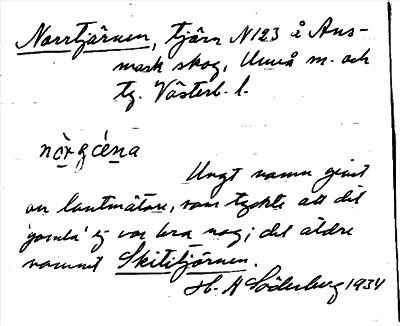 Norrtjärnen, tjärn N 123 å Ans-
mark skog, Umeå sn. och
tg. Västerb. l.
nòrgćena
Ungt namn givet
av lantmätare, som tyckte att det
'gamla' ej var bra nog; det äldre
namnet Skititjärnen.
H. A Söderberg 1934